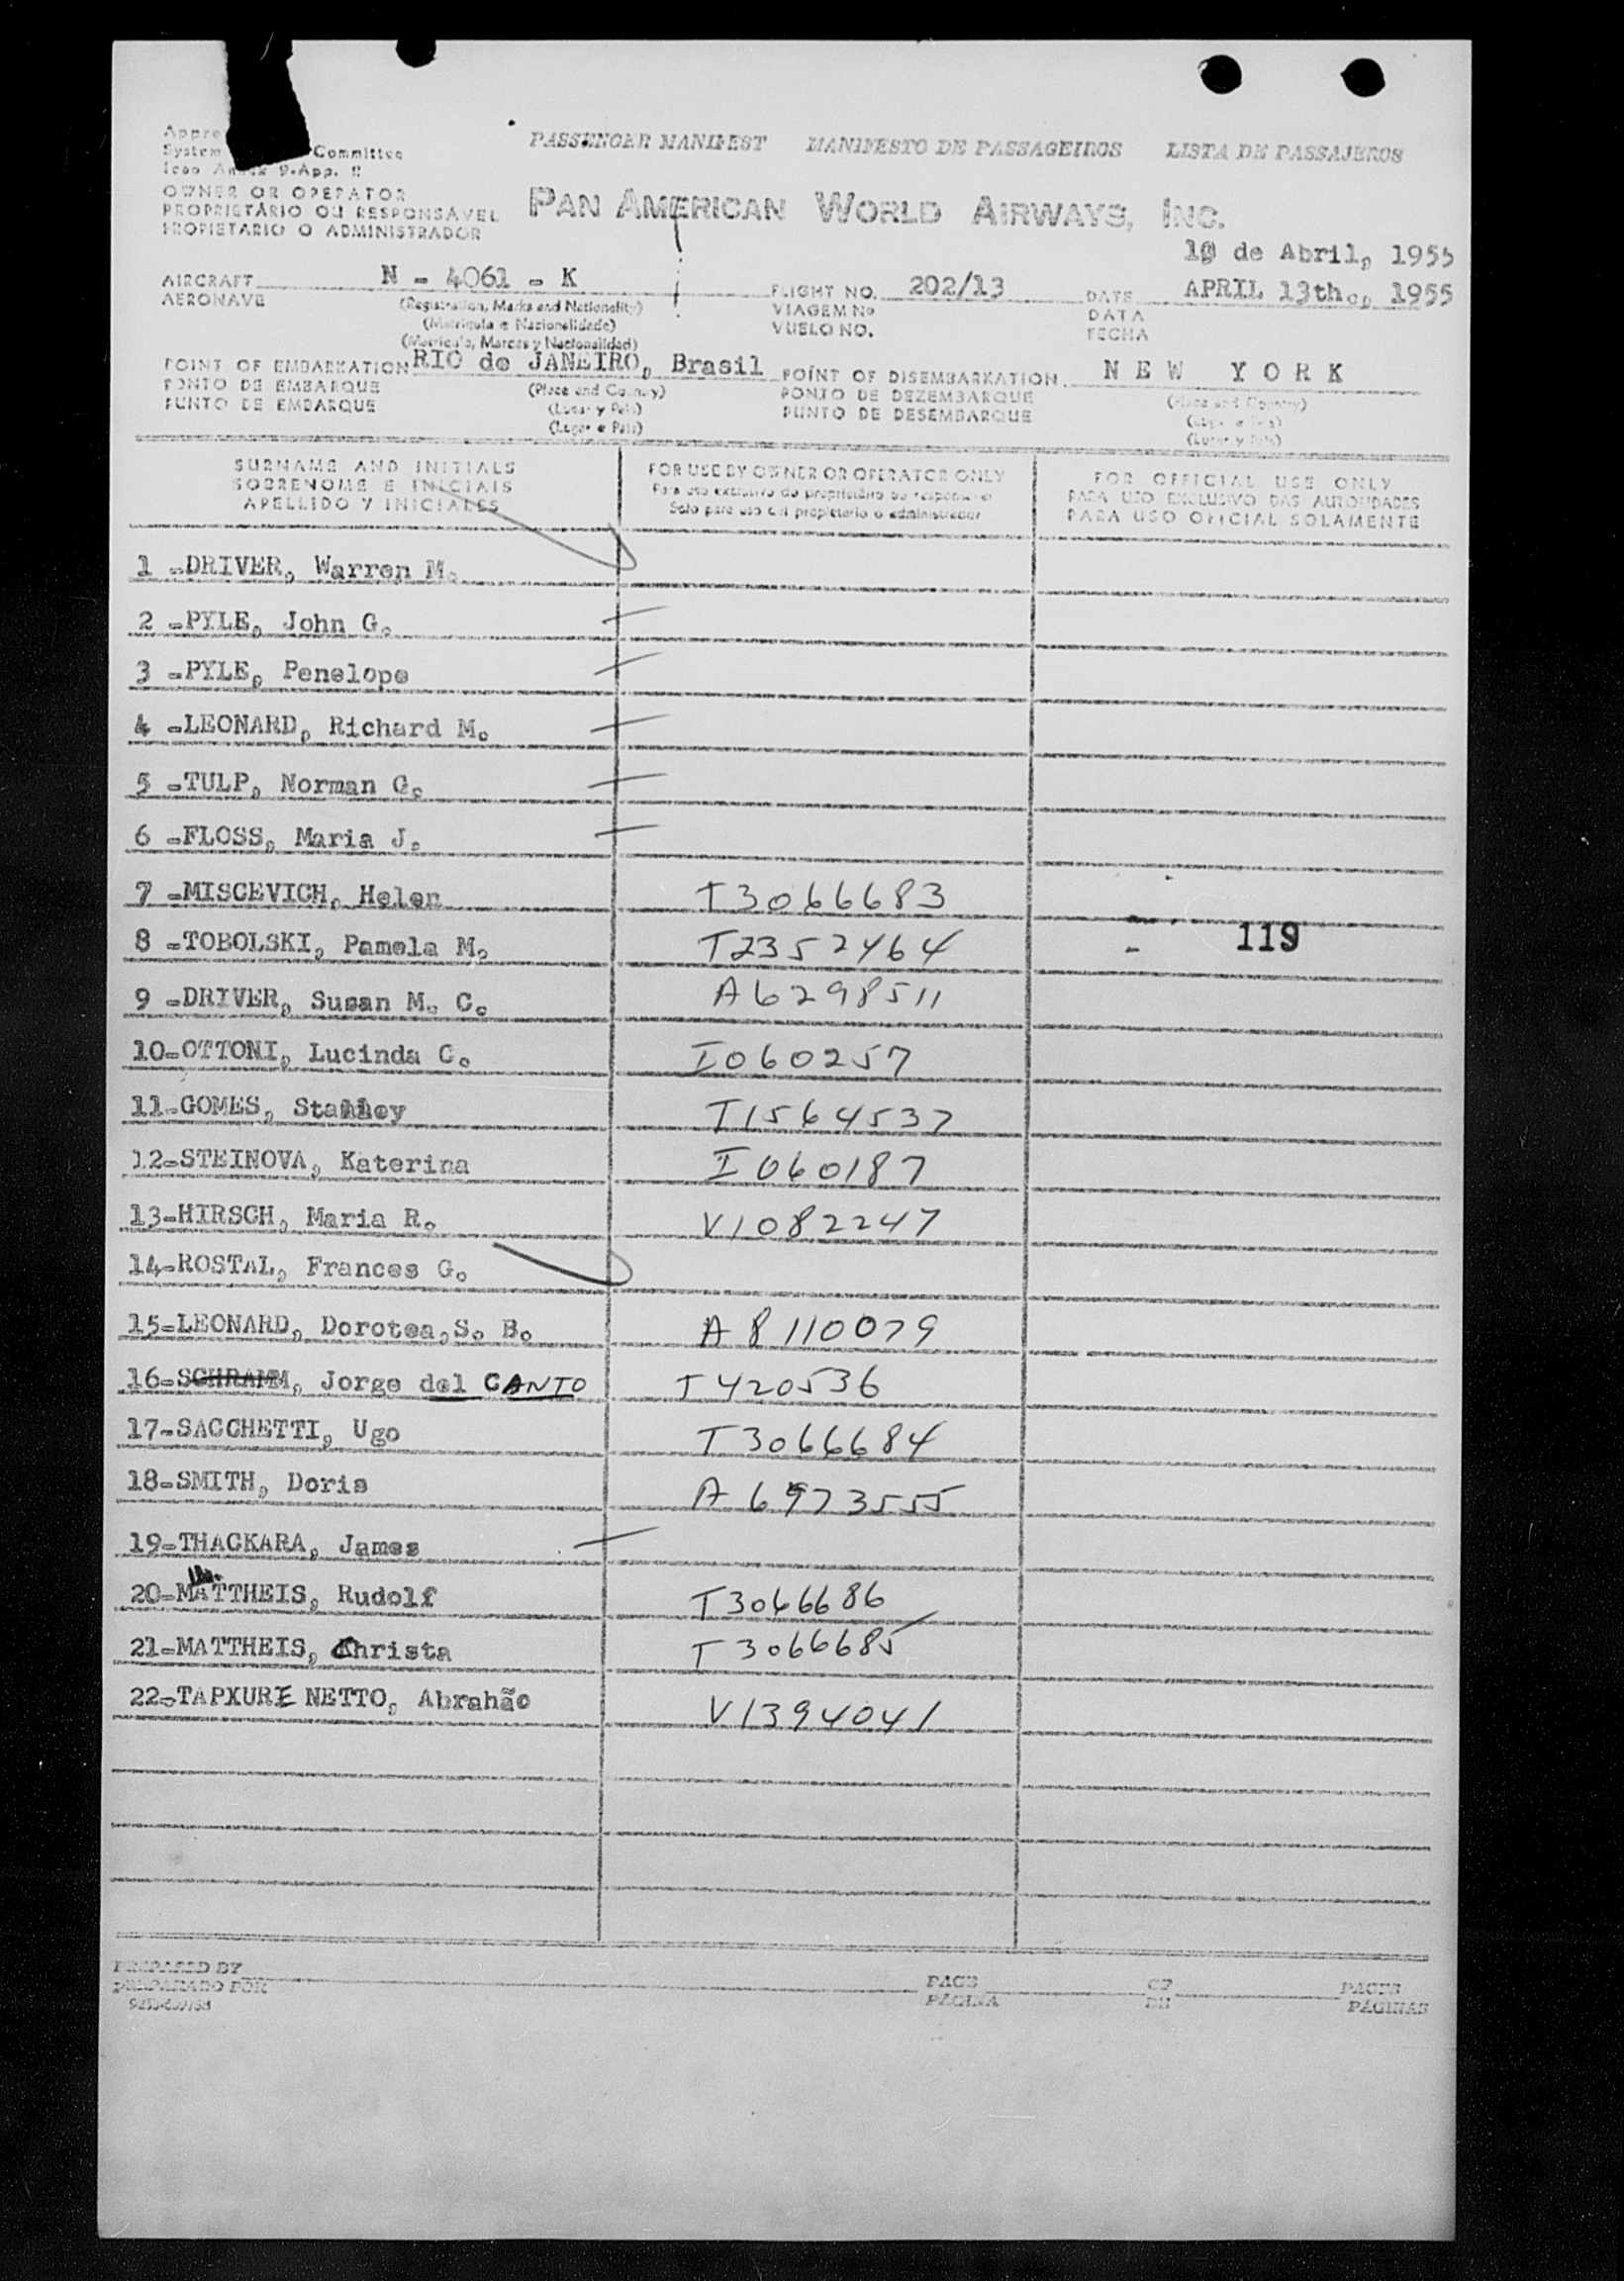 PASSENGER MANIFEST MANIFESTO DE PASSAGEIROS LISTA DE PASSAJEROS
Appro
System Committee
Icao Annex 9-App. 2
OWNER OR OPERATOR
PROPRIETÁRIO OU RESPONSÁVEL
PROPIETARIO O ADMINISTRADOR
PAN AMERICAN WORLD AIRWAYS, INC.
de Abril, 1955
AIRCRAFT N - 4061 - K FLIGHT NO. 202/13 DATE APRIL 13th., 1955
AERONAVE (Registration, Marks and Nationality) VIAGEM Nº DATA
(Matrícula e Nacionalidade) VUELO NO. FECHA
(Matrícula, Marcas y Nacionalidad)
POINT OF EMBARKATION RIO de JANEIRO, Brasil POINT OF DISEMBARKATION NEW YORK
PONTO DE EMBARQUE (Place and Country) PONTO DE DEZEMBARQUE (Place and Country)
PUNTO DE EMBARQUE (Lugar y País) PUNTO DE DESEMBARQUE
(Lugar e País) (Lugar y País)
SURNAME AND INITIALS FOR USE BY OWNER OR OPERATOR ONLY FOR OFFICIAL USE ONLY
SOBRENOME E INICIAIS Para uso exclusivo do proprietário ou responsável PARA USO EXCLUSIVO DAS AUTORIDADES
APELLIDO Y INICIALES Solo para uso del propietario o administrador PARA USO OFICIAL SOLAMENTE
1 -DRIVER, Warren M.
2 -PYLE, John G.
3 -PYLE, Penelope
4 -LEONARD, Richard M.
5 -TULP, Norman G.
6 -FLOSS, Maria J.
7 -MISCEVICH, Helen T3066683
8 -TOBOLSKI, Pamela M. T2352464 119
9 -DRIVER, Susan M. C. A6298511
10-OTTONI, Lucinda C. I060257
11-GOMES, Stanley T1564537
12-STEINOVA, Katerina I060187
13-HIRSCH, Maria R. V1082247
14-ROSTAL, Frances G.
15-LEONARD, Dorotea,S. B. A8110079
16-SCHRAMM, Jorge del CANTO T420536
17-SACCHETTI, Ugo T3066684
18-SMITH, Doris A6973555
19-THACKARA, James
20-MATTHEIS, Rudolf T3066686
21-MATTHEIS, Christa T3066685
22-TAPXURE NETTO, Abrahão V1394041
PREPARED BY PAGE OF PAGES
PREPARADO POR PÁGINA DE PÁGINAS